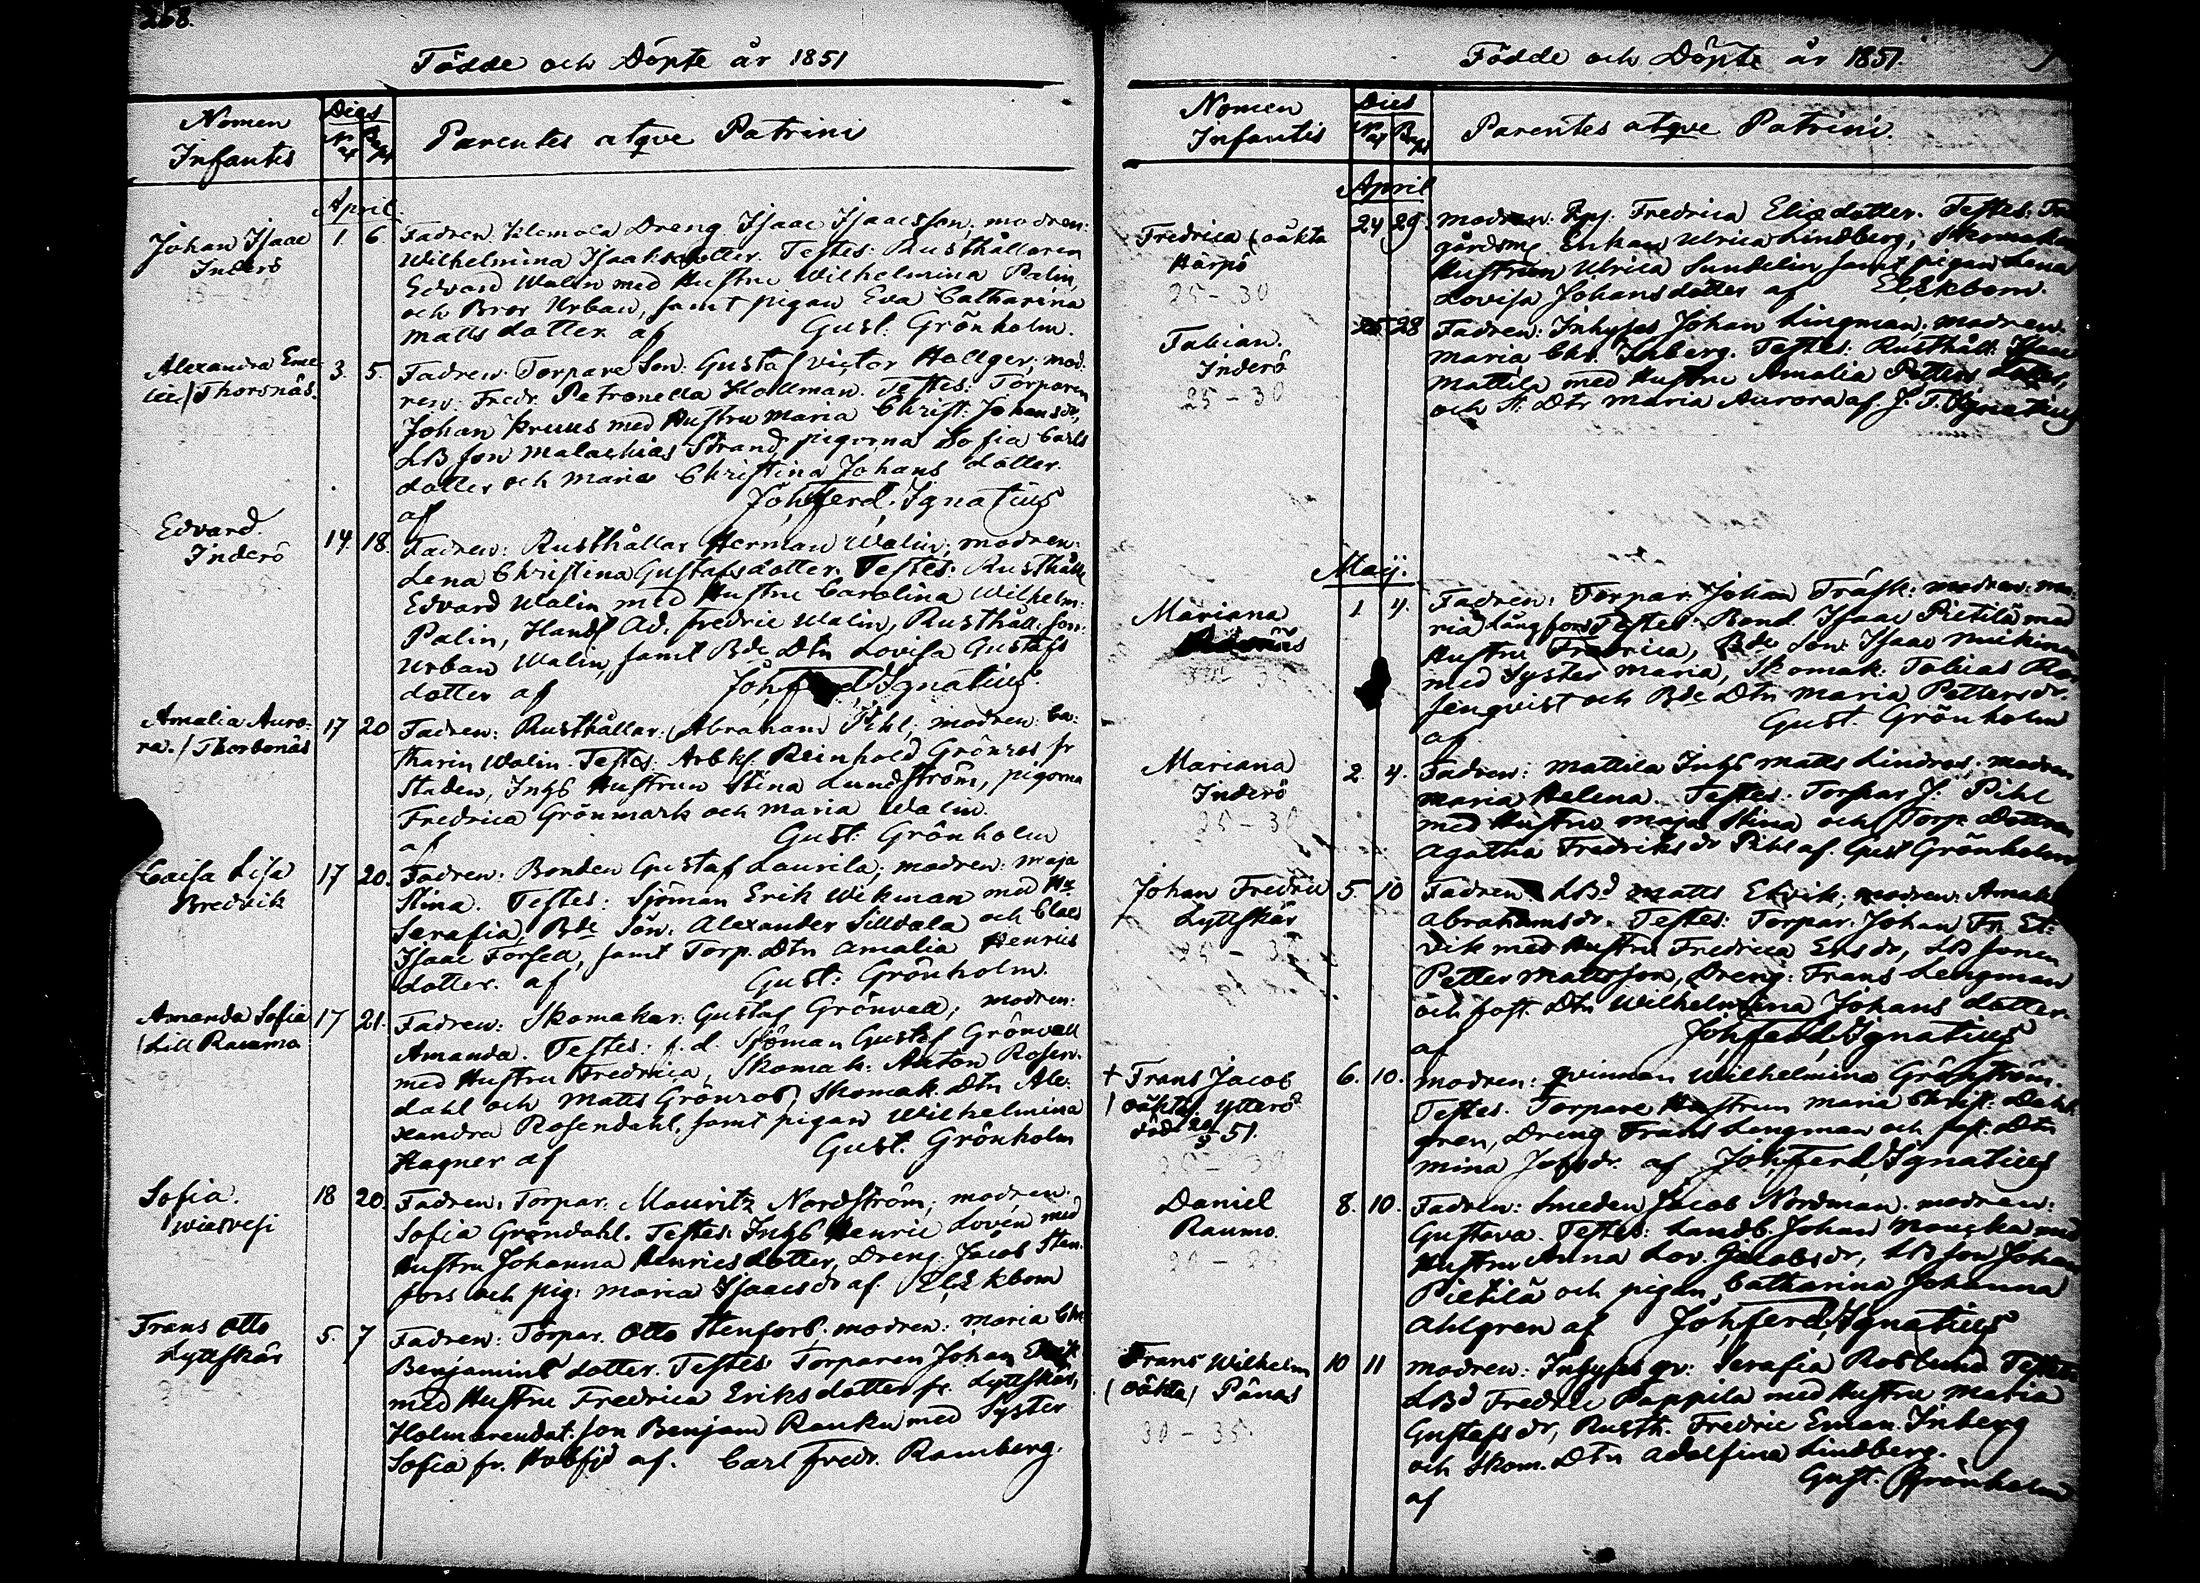 268.
Födde och Döpte år 1851
Nomen Infantis
Dies
Nat
Bapt
Parentes atqve Patrini
April.
Johan Isaac
Inderö
1. 6.
Fadren: Klemola Dreng Isaac Isaacsson; modren:
Wilhelmina Isaaksdotter. Testes: Rusthållaren
Edvard Walin med Hustru Wilhelmina Palin,
och Bror Urban, samt pigan Eva Catharina
Mattsdotter af Gust. Grönholm.
Alexandra Eme
lie / Thorsnäs.
3. 5.
Fadren: Torpare Son: Gustaf Victor Hollger; mod-
ren: Fredr. Petronella Hollman. Testes: Torparen
Johan Kruus med Hustru Maria Christ: Johansdr,
LB son Malachias Strand, pigorna Sofia Carls
dotter och Maria Christina Johans dotter.
af Joh. Ferd. Ignatius
Edvard.
Inderö
14. 18.
Fadren: Rusthållar Herman Walin; modren:
Lena Christina Gustafsdotter. Testes: Rusthåll
Edvard Walin med Hustru Carolina Wilhelm:
Palin, Handl Ad: Fredric Walin, Rusthåll: son:
Urban Walin, samt Bde Dtn Lovisa Gustafs
dotter af Joh. Ferd. Ignatius.
Amalia Auro-
ra. / Thorsnäs
17 20
Fadren: Rusthållar: Abraham Pihl; modren: Ca-
tharin Walin. Testes: Arbks. Reinhold Grönros fr
Staden, Inhs Hustrun Stina Lundström, pigorna
Fredrica Grönmark och Maria Walin.
af Gust: Grönholm
Caisa Lisa
Bredvik
17 20.
Fadren: Bonden Gustaf Laurila; modren: Maja
Stina. Testes: Sjöman Erik Wikman med Hu
Serafia, Bde Sön: Alexander Silldala och Claes
Isaac Forsea, samt Torp. Dtn Amalia Henrics
dotter. af Gust: Grönholm.
Amanda Sofia
/ Lill Raumo
17 21.
Fadren: Skomakar: Gustaf Grönvall; modren:
Amanda. Testes: f.d. Sjöman Gustaf Grönvall
med Hustru Fredrica, Skomak: Anton Rosen-
dahl och Matts Grönros, Skomak Dtn Ale-
xandra Rosendahl, samt pigan Wilhelmina
Hagner af Gust. Grönholm
Sofia.
Wiasvesi
18 20.
Fadren: Torpar. Mauritz Nordström; modren:
Sofia Gröndahl. Testes: Inhs Henric Lovén med
Hustru Johanna Henricsdotter, Dreng: Jacob Sten-
fors och pig: Maria Isaacsdr af. El. Ekbom
Frans Otto
Lyttskär
5. 7
Fadren: Torpar. Otto Stenfors. modren: Maria Chr
Benjamins dotter. Testes Torparen Johan
med Hustru Fredrica Eriks dotter fr. Lyttskär,
Holm arendat: son Benjam Ranku med Syster
Sofia fr. af. Carl Fredr. Ramberg.
Födde och Döpte år 1851.
Nomen
Infantis
Dies
Nat
Bapt
Parentes atqve Patrini.
April
Fredrica / oäkta
Härpö
25-30
24 29.
modren: Fredrica Eliedotter. Testes:
gårdsm Enkan Ulrica Lindberg, Skomakar
Hustrun Ulrica Sundelin samt pigan Lena
Lovisa Johansdotter af El. Ekbom.
Fabian.
Inderö
25-30
25 28
Fadren: Inhyses Johan Lingman; modren:
Maria Chr. Inberg. Testes: Rusthåll: Isaac
Mattila med Hustru Amalia Petters dotter,
och St. Dtr Maria Aurora af. J. F. Ignatius
Maij.
Mariana
1 4.
Fadren: Torpar: Johan Träsk: modren: Ma-
ria Långfors. Testes: Bond. Isaac Pietilä med
Hustru Fredrica, Bde Son: Isaac Muikina
med Syster Maria, Skomak: Tobias Ro-
senqvist och Bde Dtn Maria Pettersdr.
af Gust. Grönholm
Mariana
Inderö
25-30
2. 4.
Fadren: Mattila Inhs Matts Lindros; modren
Maria Helena. Testes: Torpar J: Pihl
med Hustru Maja Stina och Torp Dottren
Agatha Fredriksdr Pihl af. Gust Grönholm
Johan Fredric
Lyttskär
5. 10
Fadren LBd Matts Etvik; modren: Amal:
Abrahamsdr. Testes: Torpar: Johan Fr. Et-
vik med Hustru Fredrica Ersdr, LB sonen
Petter Mattsson, Dreng: Frans Lengman
och fost. Dtn Wilhelmina Johans dotter.
af Joh. Ferd. Ignatius
+ Frans Jacob
/ oäkta. Ytterö
död 20/5 51.
6. 10.
modren: qvinnan Wilhelmina Grönström.
Testes. Torpare Hustrun Maria Christ: Dahl
gren, Dreng Frans Lengman och fost: Dtn
Mina Johsdr. af Joh. Ferd. Ignatius
Daniel
Raumo.
8. 10.
Fadren: Smeden Jacob Nordman. modren:
Gustava. Testes: Landb. Johan med
Hustru Anna Lov. Jacobsdr, LB son Johan
Pietilä och pigan Catharina Johanna
Ahlgren af Joh. Ferd. Ignatius
Frans Wilhelm
/ oäkta / Pänas
30-35
10 11
modren: Inhyses qv: Serafia Roslund Testes:
LBd Fredric Pappila med Hustru Maria
Gustafsdr, Rusth. Fredric Eman. Inberg
och Skom. Dtn Adolfina Lindberg.
af Gust. Grönholm